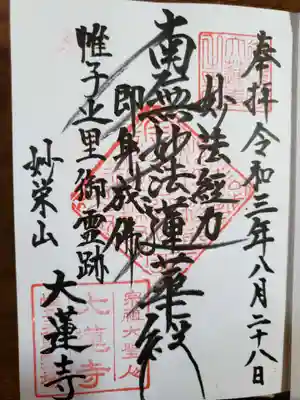 奉拝 令和三年八月二十八日
妙法経力
南無妙法蓮華経
即身成佛
帷子之里御霊跡
妙栄山 大蓮寺
宗祖大聖人
大蓮寺